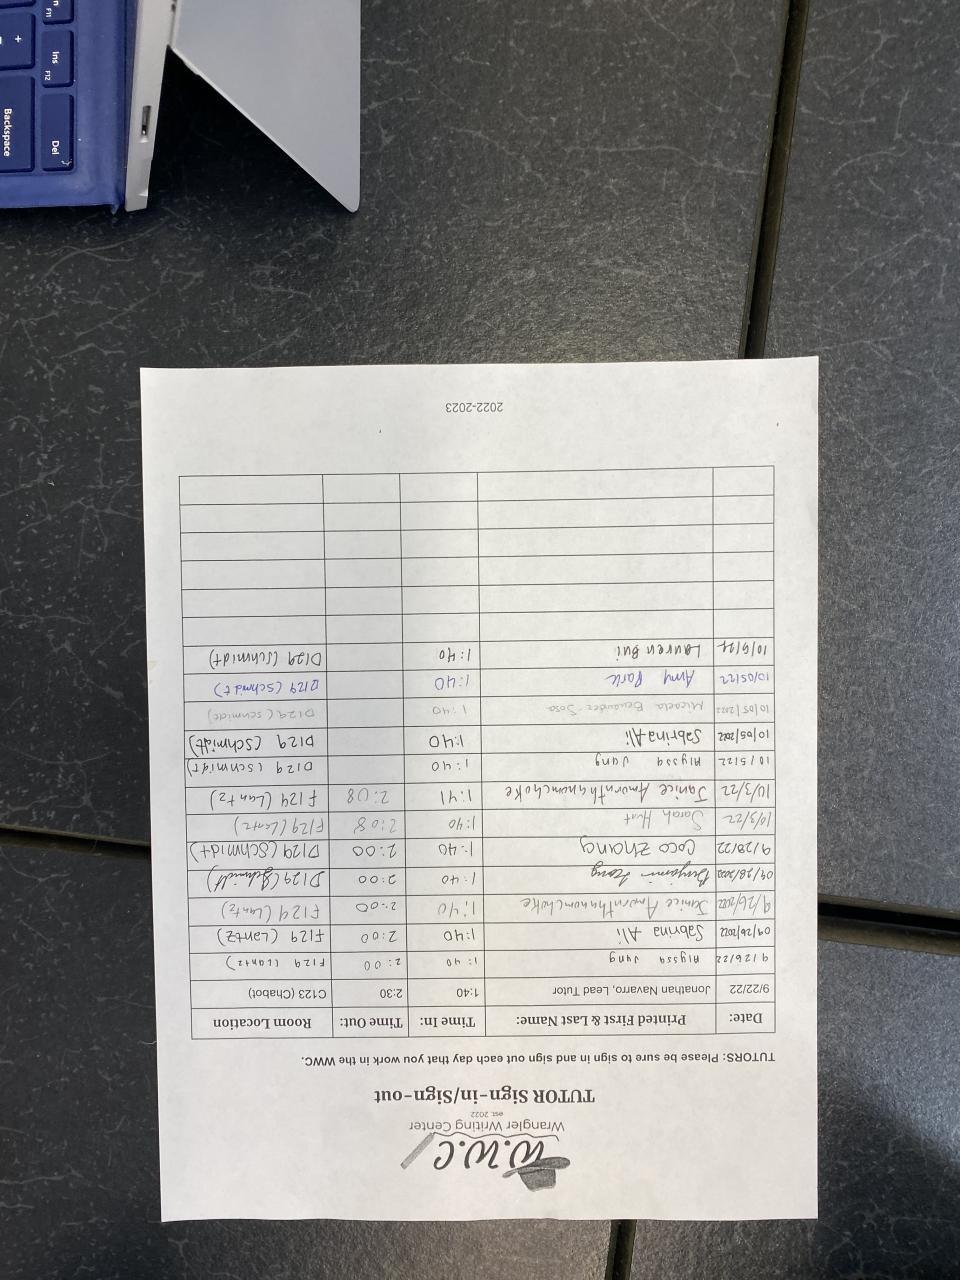 W.W.C
Wrangler Writing Center
est. 2022
TUTOR Sign-in/Sign-out
TUTORS: Please be sure to sign in and sign out each day that you work in the WWC.
Date: Printed First & Last Name: Time In: Time Out: Room Location
9/22/22 Jonathan Navarro, Lead Tutor 1:40 2:30 C123 (Chabot)
9/26/22 Alyssa Jung 1:40 2:00 F129 (Lantz)
09/26/2022 Sabrina Ali 1:40 2:00 F129 (Lantz)
9/26/2022 Janice Amornthanomchoke 1:40 2:00 F129 (Lantz)
09/28/2022 Benjamin 1:40 2:00 D129 (Schmidt)
9/28/22 Coco Zhang 1:40 2:00 D129 (Schmidt)
10/3/22 Sarah Hunt 1:40 2:08 F129 (Lantz)
10/3/22 Janice Amornthanomchoke 1:41 2:08 F129 (Lantz)
10/5/22 Alyssa Jung 1:40 D129 (Schmidt)
10/05/2022 Sabrina Ali 1:40 D129 (Schmidt)
10/05/2022 Micaela Sosa 1:40 D129 (Schmidt)
10/05/22 Amy Park 1:40 D129 (Schmidt)
Lauren Bui 1:40 D129 (Schmidt)
2022-2023
F11
Ins
F12
+
Del
Backspace